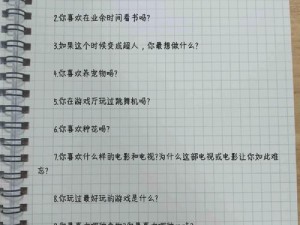 2.你喜欢在业余时间看书吗?
3.如果这个时候变成超人，你最想做什么?
4.你喜欢养宠物吗?
5.你在游戏厅玩过跳舞机吗?
6.你喜欢种花吗?
7.你喜欢什么样的电影和电视?为什么这部电视或电影让你如此难
忘?
8.你玩过最好玩的游戏是什么?